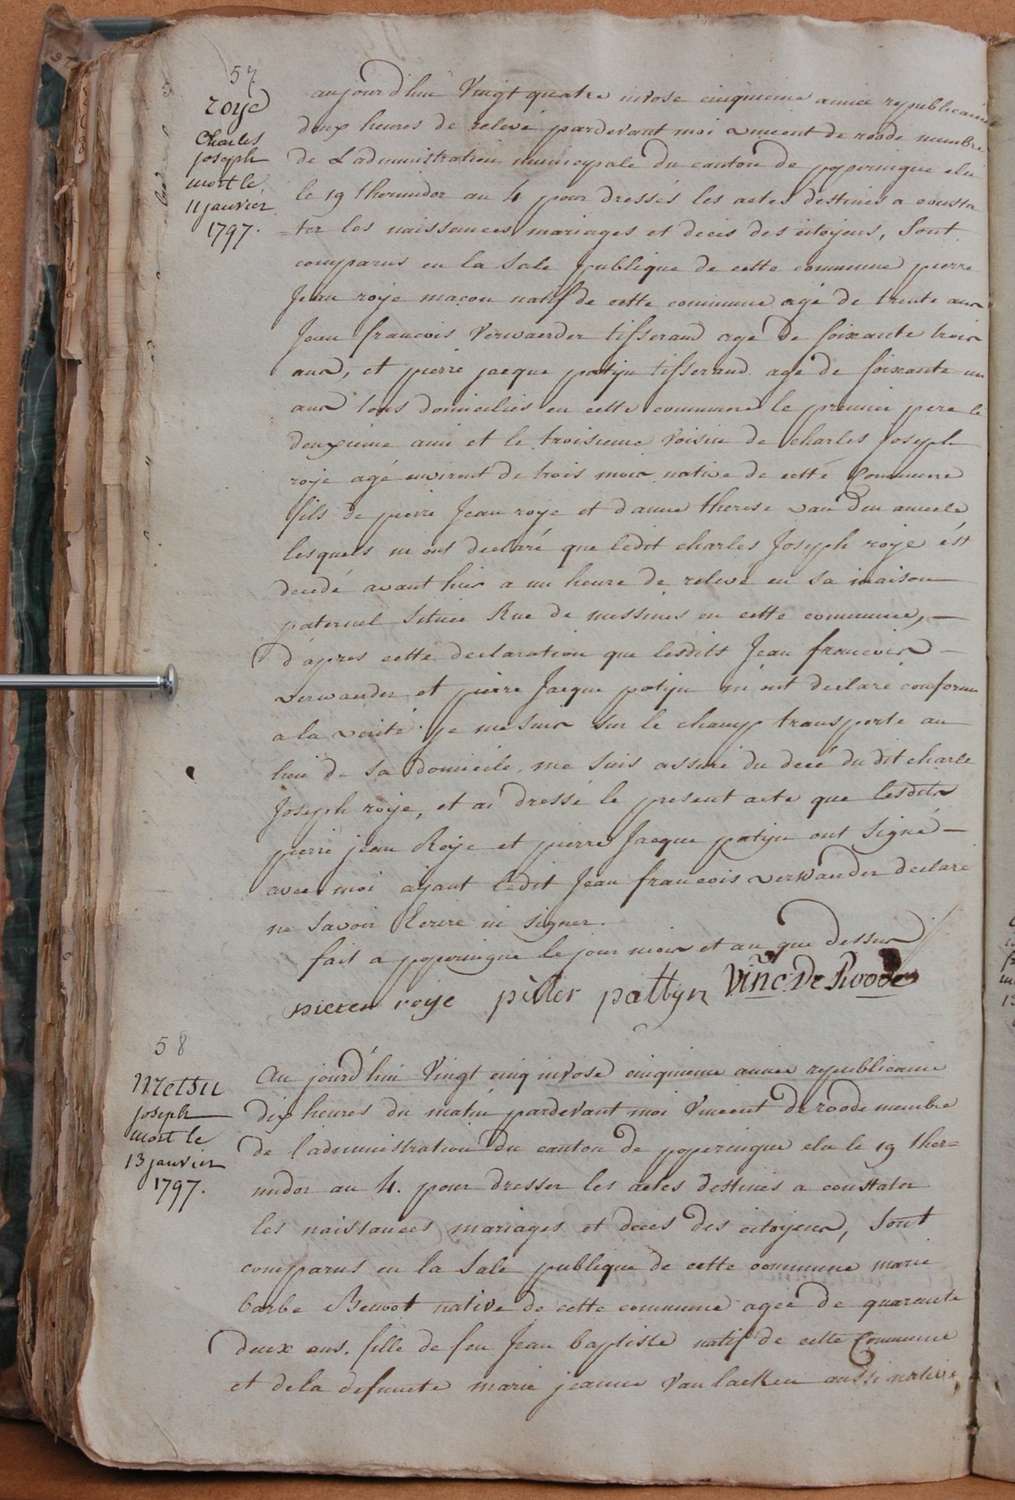 57
roye
Charles
joseph
mort le
11 janvier
1797.
aujourd'hui Vingt quatre nivose cinquieme année republicaine
deux heures de relevé pardevant moi vincent de roode membre
de L'administration municipale du canton de poperingue elu
le 19 thermidor an 4 pour dressés les actes destinés a consta
=ter les naissances mariages et deces des citoyens, Sont
comparus en la Sale publique de cette commune pierre
Jean roye macon natif de cette commune agé de trente ans
Jean francois Verwaerder tisserand agé de soixante trois
ans, et pierre jacque patijn tisserand agé de soixante un
ans tous domiciliés en cette commune le premier pere le
deuxieme ami et le troisieme Voisin de charles Joseph
roye agé environt de trois mois native de cette Commune
fils de pierre Jean roye et d'anne therese van den
lesquels m'ont declaré que ledit charles Joseph roye ést
decedé avant hier a un heure de relevé en sa maison
paternel Situee Rue de messines en cette commune, —
d'apres cette declaration que lesdits Jean francois —
verwaerder et pierre Jacque patijn m'ont declaré conforme
a la verité je me suis sur le champ transporté au
lieu de sa domicile, me suis assuré du decé du dit charle
Joseph roye, et ai dressé le present acte que lesdits
pierre jean Roye et pierre Jacque patijn ont signé —
avec moi ayant ledit Jean francois verwaerder declaré
ne savoir Ecrire ni signer.
fait a poperingue le jour mois et an que dessus
pieter roye pieter pattyn Vinc: De Roode
58
metsu
joseph
mort le
13 janvier
1797.
Au jourd'hui Vingt cinq nivose cinquieme annee republicaine
dix heures du matin pardevant moi Vincent De roode membre
de l'administration du canton de poperingue elu le 19 ther=
midor an 4. pour dresser les actes destinés a constater
les naissances mariages et deces des citoyens, Sont
comparus en la Sale publique de cette commune marie
barbe native de cette commune agée de quarante
deux ans. fille de feu Jean baptiste natif de cette Commune
et dela defuncte marie jeanne Van laeken aussi native